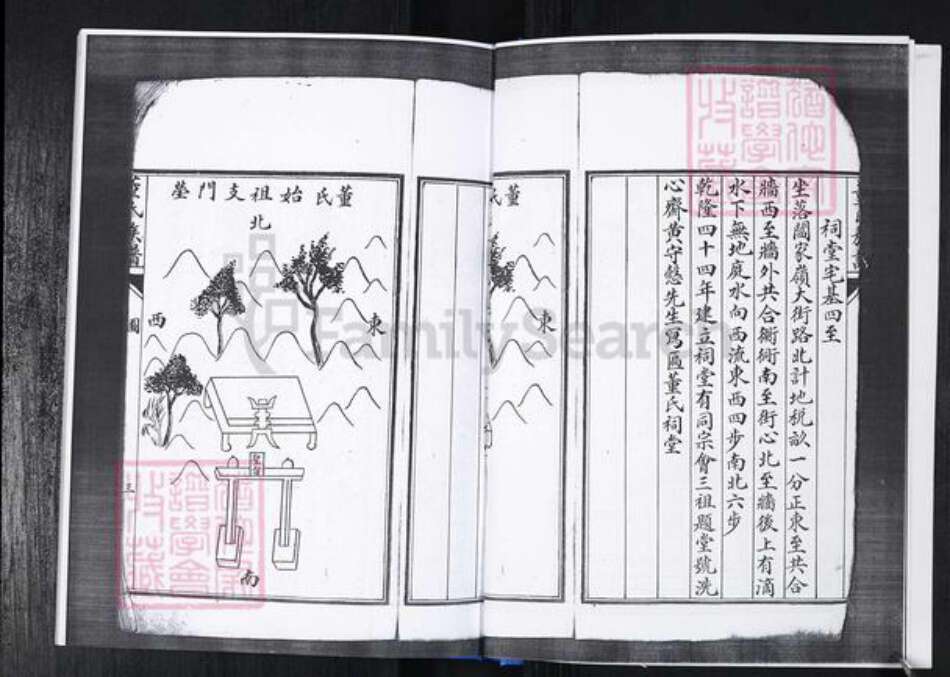 祠堂宅基四至
坐落闔家嶺大街路北計地稅畝一分正東至共合
牆西至牆外共合衚衕南至街心北至牆後上有滴
水下無地庭水向西流東西四步南北六步
乾隆四十四年建立祠堂有同宗會三祖題堂號洗
心齋黄守愨先生寫匾董氏祠堂
董氏
東
董氏始祖支門塋
北
東
西
南
圖
三
FamilySearch